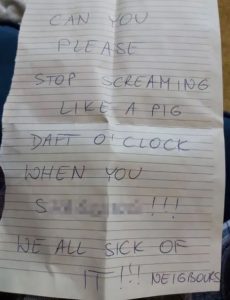 CAN YOU
PLEASE
STOP SCREAMING
LIKE A PIG
DAFT O'CLOCK
WHEN YOU
S !!!
WE ALL SICK OF
IT!!! NEIGBOURS